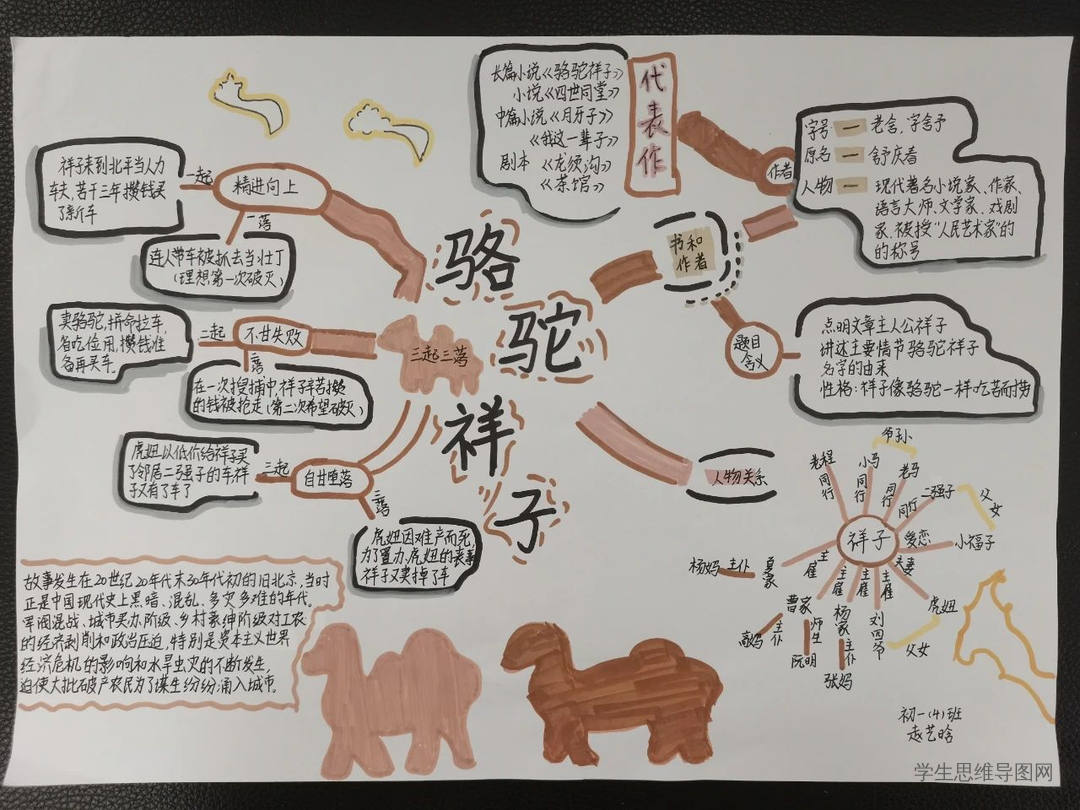 骆
驼
祥
子
三起三落
精进向上
一起
祥子来到北平当人力
车夫,苦干三年攒钱买
了新车
一落
连人带车被抓去当壮丁
(理想第一次破灭)
不甘失败
二起
卖骆驼,拼命拉车,
省吃俭用,攒钱准
备再买车.
二落
在一次搜捕中,祥子辛苦攒
的钱被抢走(第二次希望破灭)
自甘堕落
三起
虎妞以低价给祥子买
了邻居二强子的车祥
子又有了车了
三落
虎妞因难产而死
为了置办虎妞的丧事
祥子又卖掉了车
代表作
长篇小说《骆驼祥子》
小说《四世同堂》
中篇小说《月牙子》
《我这一辈子》
剧本 《龙须沟》
《茶馆》
书和
作者
作者
字号 一 老舍,字舍予
原名 一 舒庆春
人物 一 现代著名小说家、作家、
语言大师、文学家、戏剧
家,被授"人民艺术家"的
的称号
题目
含义
点明文章主人公祥子
讲述主要情节骆驼祥子
名字的由来
性格:祥子像骆驼一样吃苦而耐劳
人物关系
祥子
老程
同行
小马
同行
老马
同行
爷孙
二强子
同行
父女
小福子
爱恋
虎妞
夫妻
父女
刘四爷
主雇
杨家
主雇
主仆
张妈
曹家
主雇
师生
阮明
主仆
高妈
夏家
主雇
主仆
杨妈
故事发生在20世纪20年代末30年代初的旧北京.当时
正是中国现代史上黑暗、混乱、多灾多难的年代.
军阀混战、城市买办阶级、乡村豪绅阶级对工农
的经济剥削和政治压迫,特别是资本主义世界
经济危机的影响和水旱虫灾的不断发生,
迫使大批破产农民为了谋生纷纷涌入城市.
初一(4)班
赵艺晗
学生思维导图网